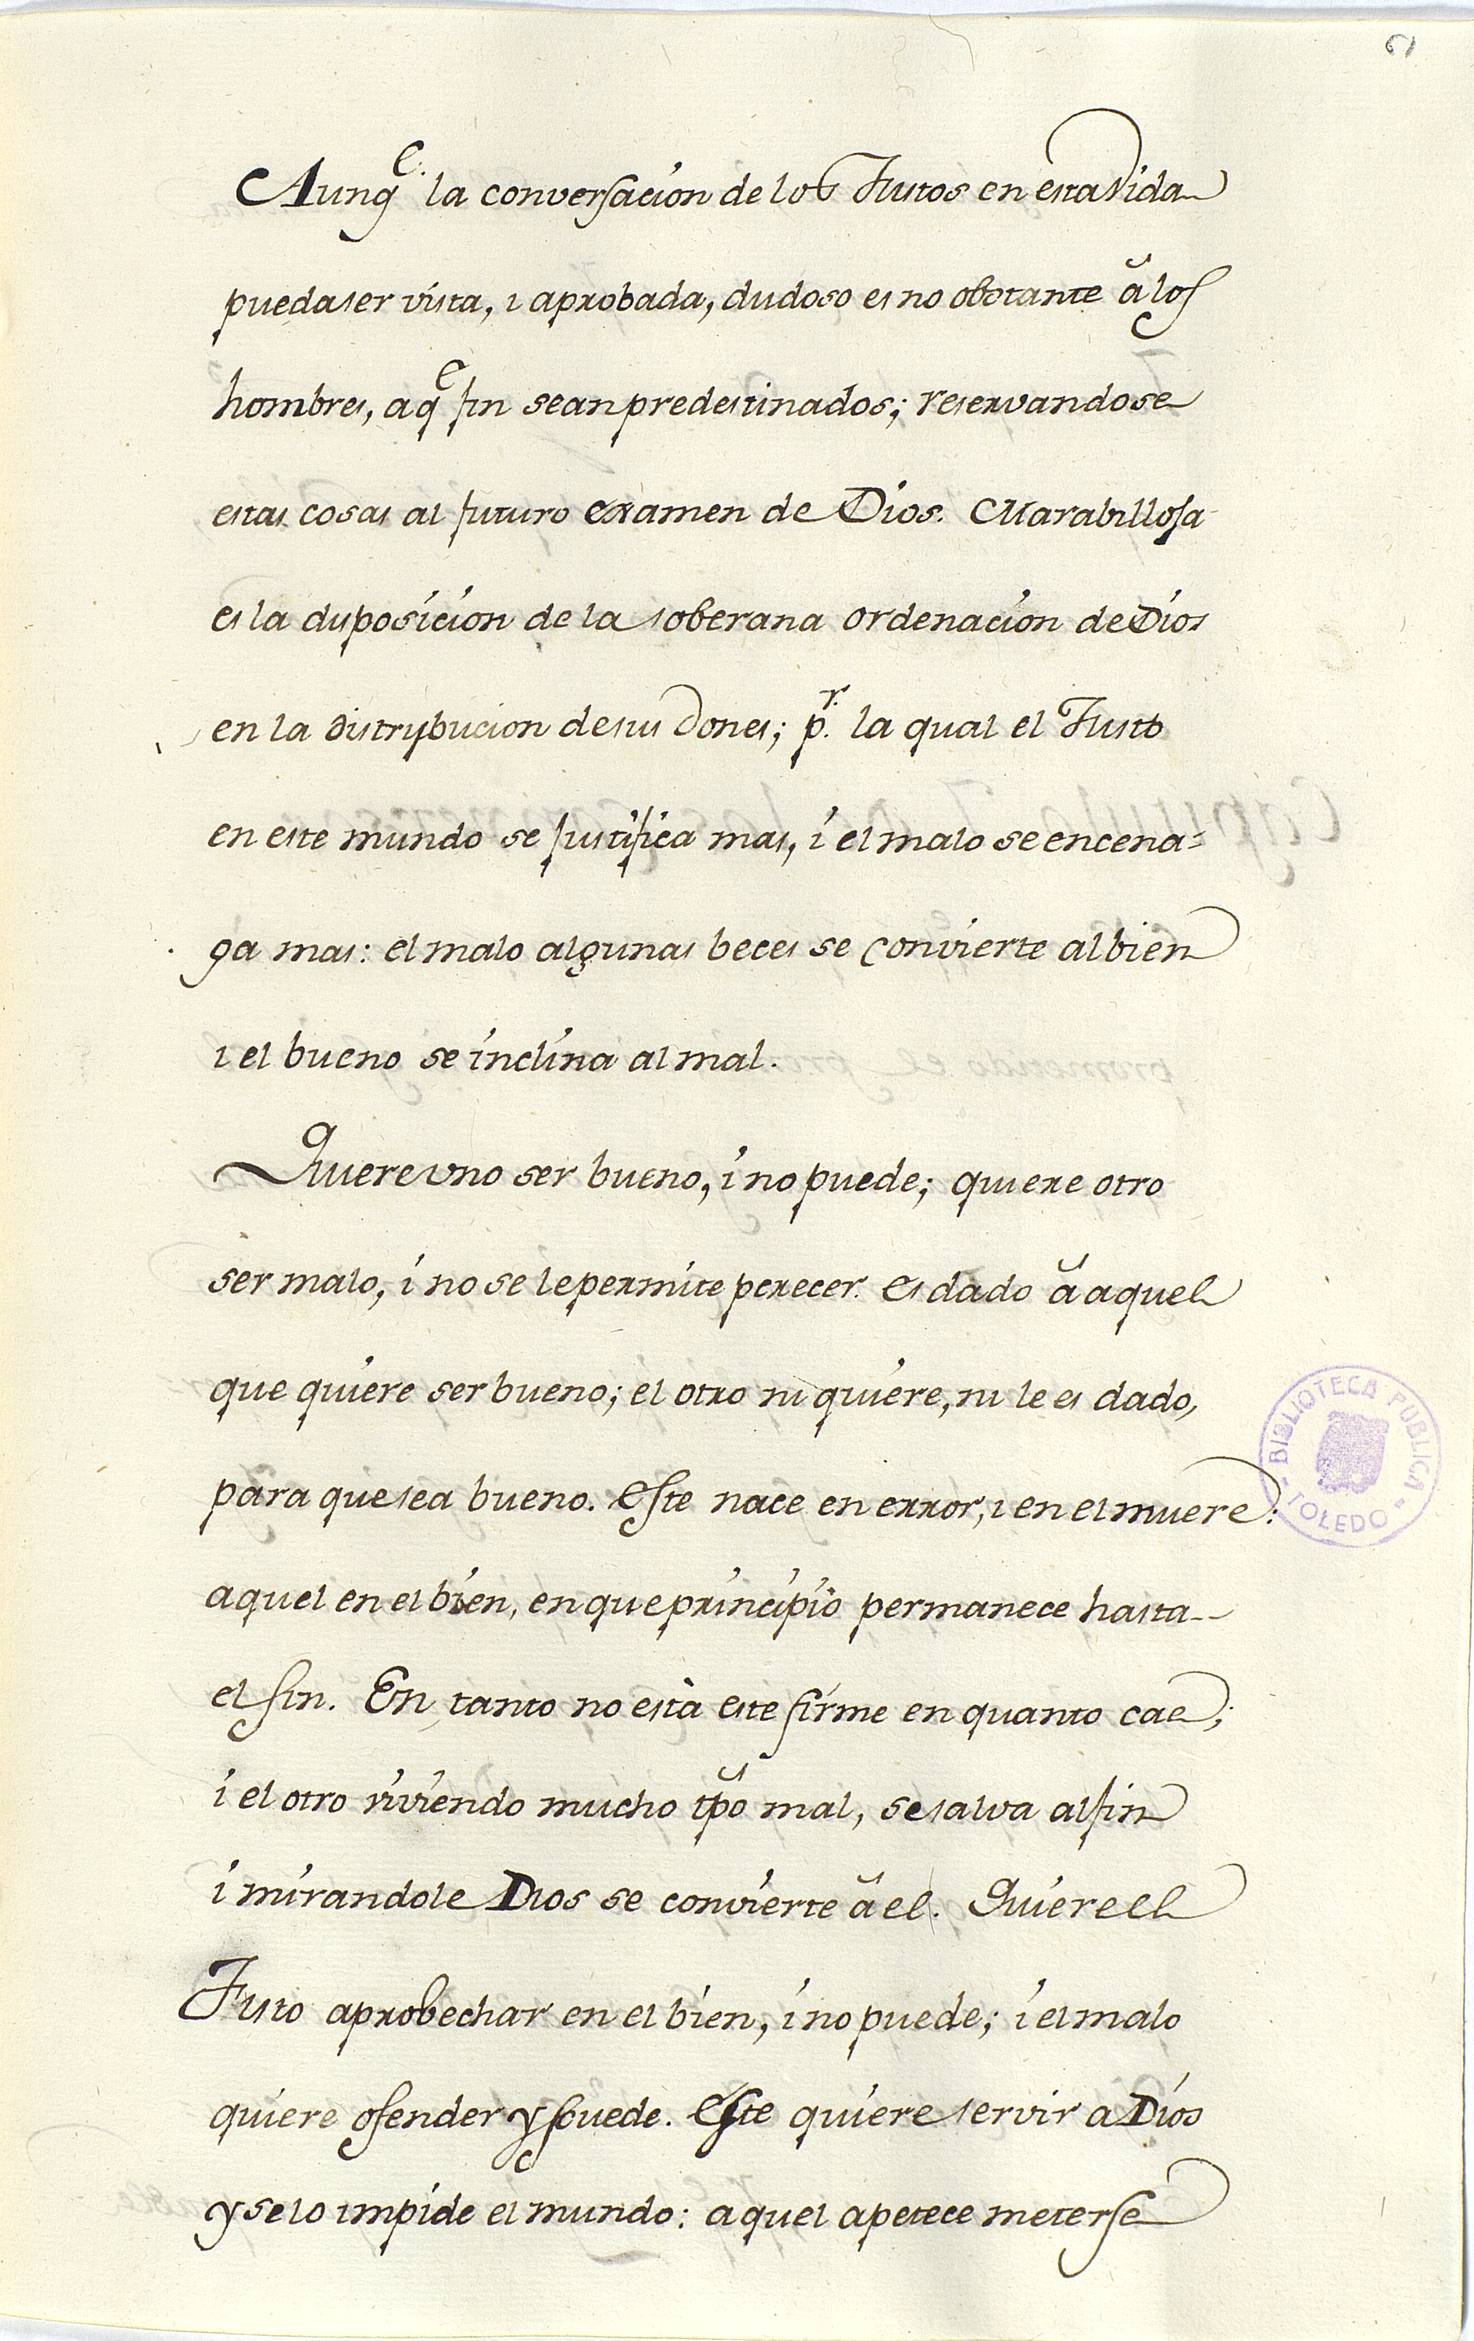 Aunq.e la conversacion de los Justos en esta vida
pueda ser vista, i aprobada, dudoso es no obstante â los
hombres, a q.e fin sean predestinados; reservandose
estas cosas al futuro examen de Dios. Marabillosa
es la disposicion de la soberana ordenacion de Dios
en la distrybucion de sus dones; p.r la qual el Justo
en este mundo se justifica mas, i el malo se encena=
ga mas: el malo algunas beces se convierte al bien
i el bueno se inclina al mal.
Quiere vno ser bueno, i no puede; quiere otro
ser malo, i no se le permite perecer. Es dado â aquel
que quiere ser bueno; el otro ni quiere, ni le es dado,
para que sea bueno. Este nace en error, i en el muere:
aquel en el bien, en que principiò permanece hasta
el fin. En tanto no està este firme en quanto cae;
i el otro viviendo mucho tpõ mal, se salva al fin
i mirandole Dios se convierte â el. Quiere el
Justo aprobechar en el bien, i no puede; i el malo
quiere ofender y puede. Este quiere servir a Dios
y se lo impide el mundo: aquel apetece meterse
BIBLIOTECA PUBLICA
TOLEDO